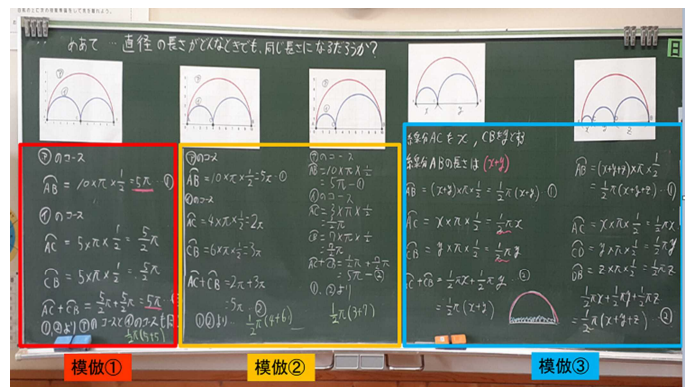 めあて … 直径の長さがどんなときでも、同じ長さになるだろうか?
㋐のコース
A͡B = 10×π×1/2 = 5π …①
㋑のコース
A͡C = 5×π×1/2 = 5/2π
C͡B = 5×π×1/2 = 5/2π
A͡C+C͡B = 5/2π+5/2π = 5π
①,②より ㋐のコースと㋑のコースも
1/2π(5+5)
模倣①
㋐のコース
A͡B = 10×π×1/2 = 5π …①
㋑のコース
A͡C = 4×π×1/2 = 2π
C͡B = 6×π×1/2 = 3π
A͡C+C͡B = 2π+3π
= 5π …②
①②より 1/2π(4+6)
㋐のコース
A͡B = 10×π×1/2
= 5π …①
㋑のコース
A͡C = 3×π×1/2
= 3/2π
C͡B = 7×π×1/2
= 7/2π
A͡C+C͡B = 3/2π+7/2π
= 5π …②
①,②より
1/2π(3+7)
模倣②
線分ACをx, CBをyとする
線分ABの長さは (x+y)
A͡B = (x+y)×π×1/2 = 1/2π(x+y) …①
A͡C = x×π×1/2 = 1/2πx
C͡B = y×π×1/2 = 1/2πy
A͡C+C͡B = 1/2πx+1/2πy …②
= 1/2π(x+y)
A͡B = (x+y+z)×π×1/2
= 1/2π(x+y+z) …①
A͡C = x×π×1/2 = 1/2πx
C͡D = y×π×1/2 = 1/2πy
D͡B = z×π×1/2 = 1/2πz
1/2πx+1/2πy+1/2πz
= 1/2π(x+y+z) …②
模倣③
日